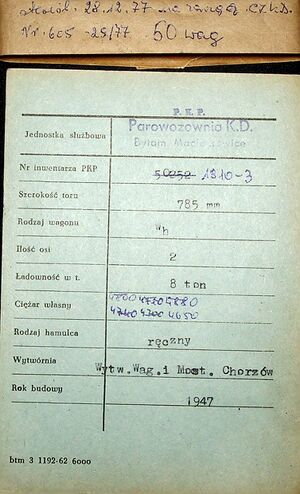 28.12.77
Nr. 605-25/77 50 wag
P. K. P.
Jednostka służbowa Parowozownia K.D.
Bytom Maciejkowice
Nr inwentarza PKP 50252 1310-3
Szerokość toru 785 mm
Rodzaj wagonu Wh
Ilość osi 2
Ładowność w t. 8 ton
Ciężar własny
4740 4700 4650
Rodzaj hamulca ręczny
Wytwórnia Wytw.Wag.i Most. Chorzów
Rok budowy 1947
btm 3 1192-62 6000